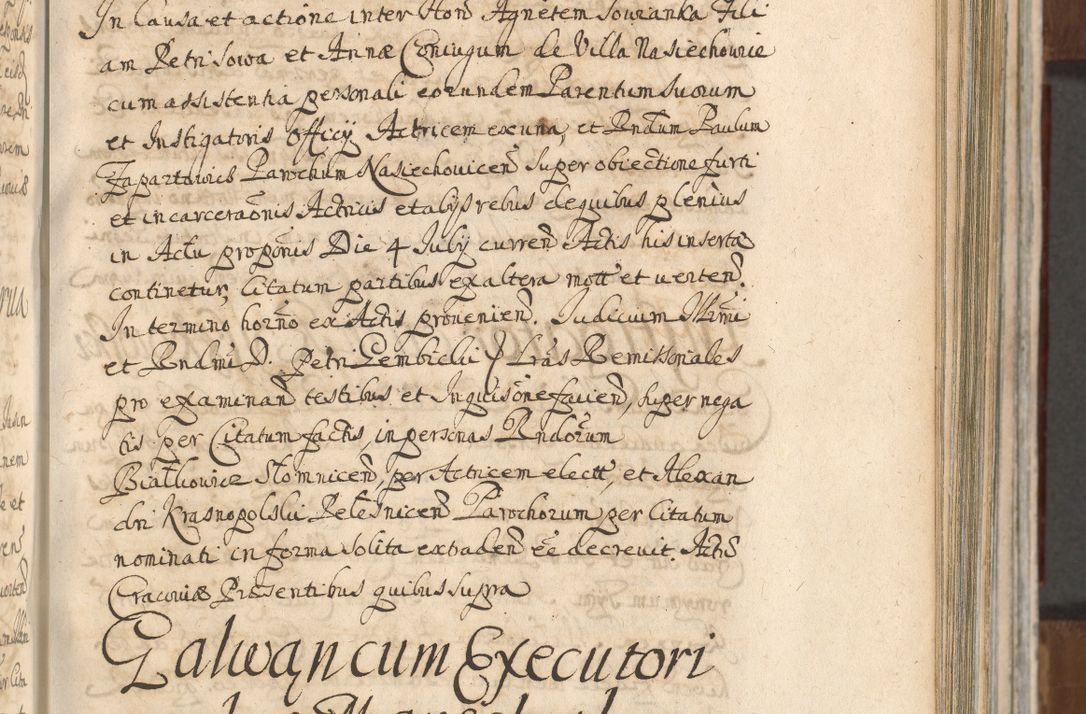 In Causa et actione inter Hon Agnetem Sowianka Fili
am Petri Sowa et Annæ Coniugum de Villa Nasiechowie
cum assistentia personali eorundem Parentum suorum
et Instigatoris Officÿ Actricem ex una, et Rndum Paulum
Zapartowicz Parochum Nasiechowicen super obiectione furti
et incarceraonis Actricis et alÿs rebus de quibus plenius
in Actu proponis Die 4 Julÿ curren Actis his inserta
continetur, Citatum partibus ex altera mott et uerten.
In termino horno ex Actis prouenien. Judicium Illmi
et Rndmi D. Petri Gembicki Lras Remissoriales
pro examinan testibus et Inquisone facien, super nega
tis per Citatum factis, in personas Rndorum
Białkowicz Słomnicen, per Actricem elect, et Alexan
dri Krasnopolski Pelesnicen Parochorum per Citatum
nominati in forma solita extraden ee decreuit Acts
Cracouiæ Præsentibus quibus supra
Galwąn cum Executori